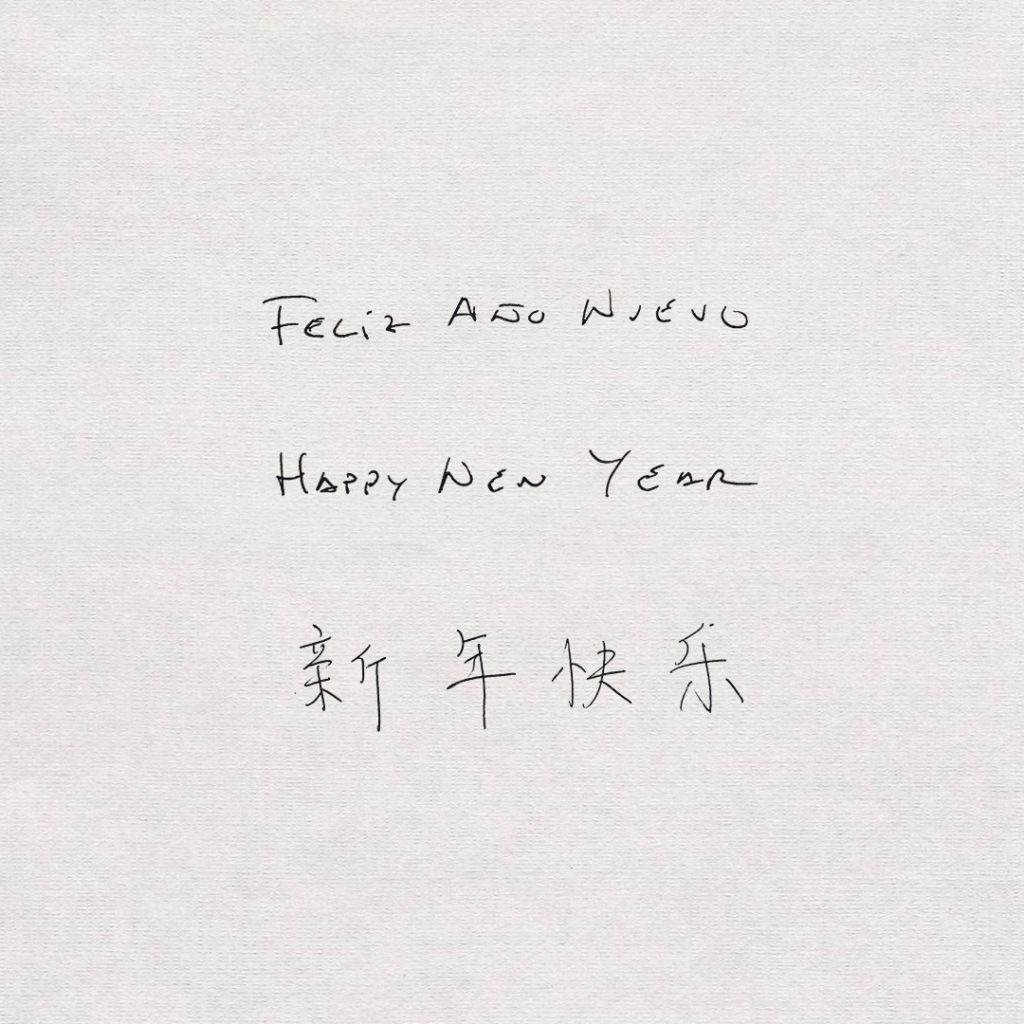 Feliz Año Nuevo
Happy New Year
新年快乐